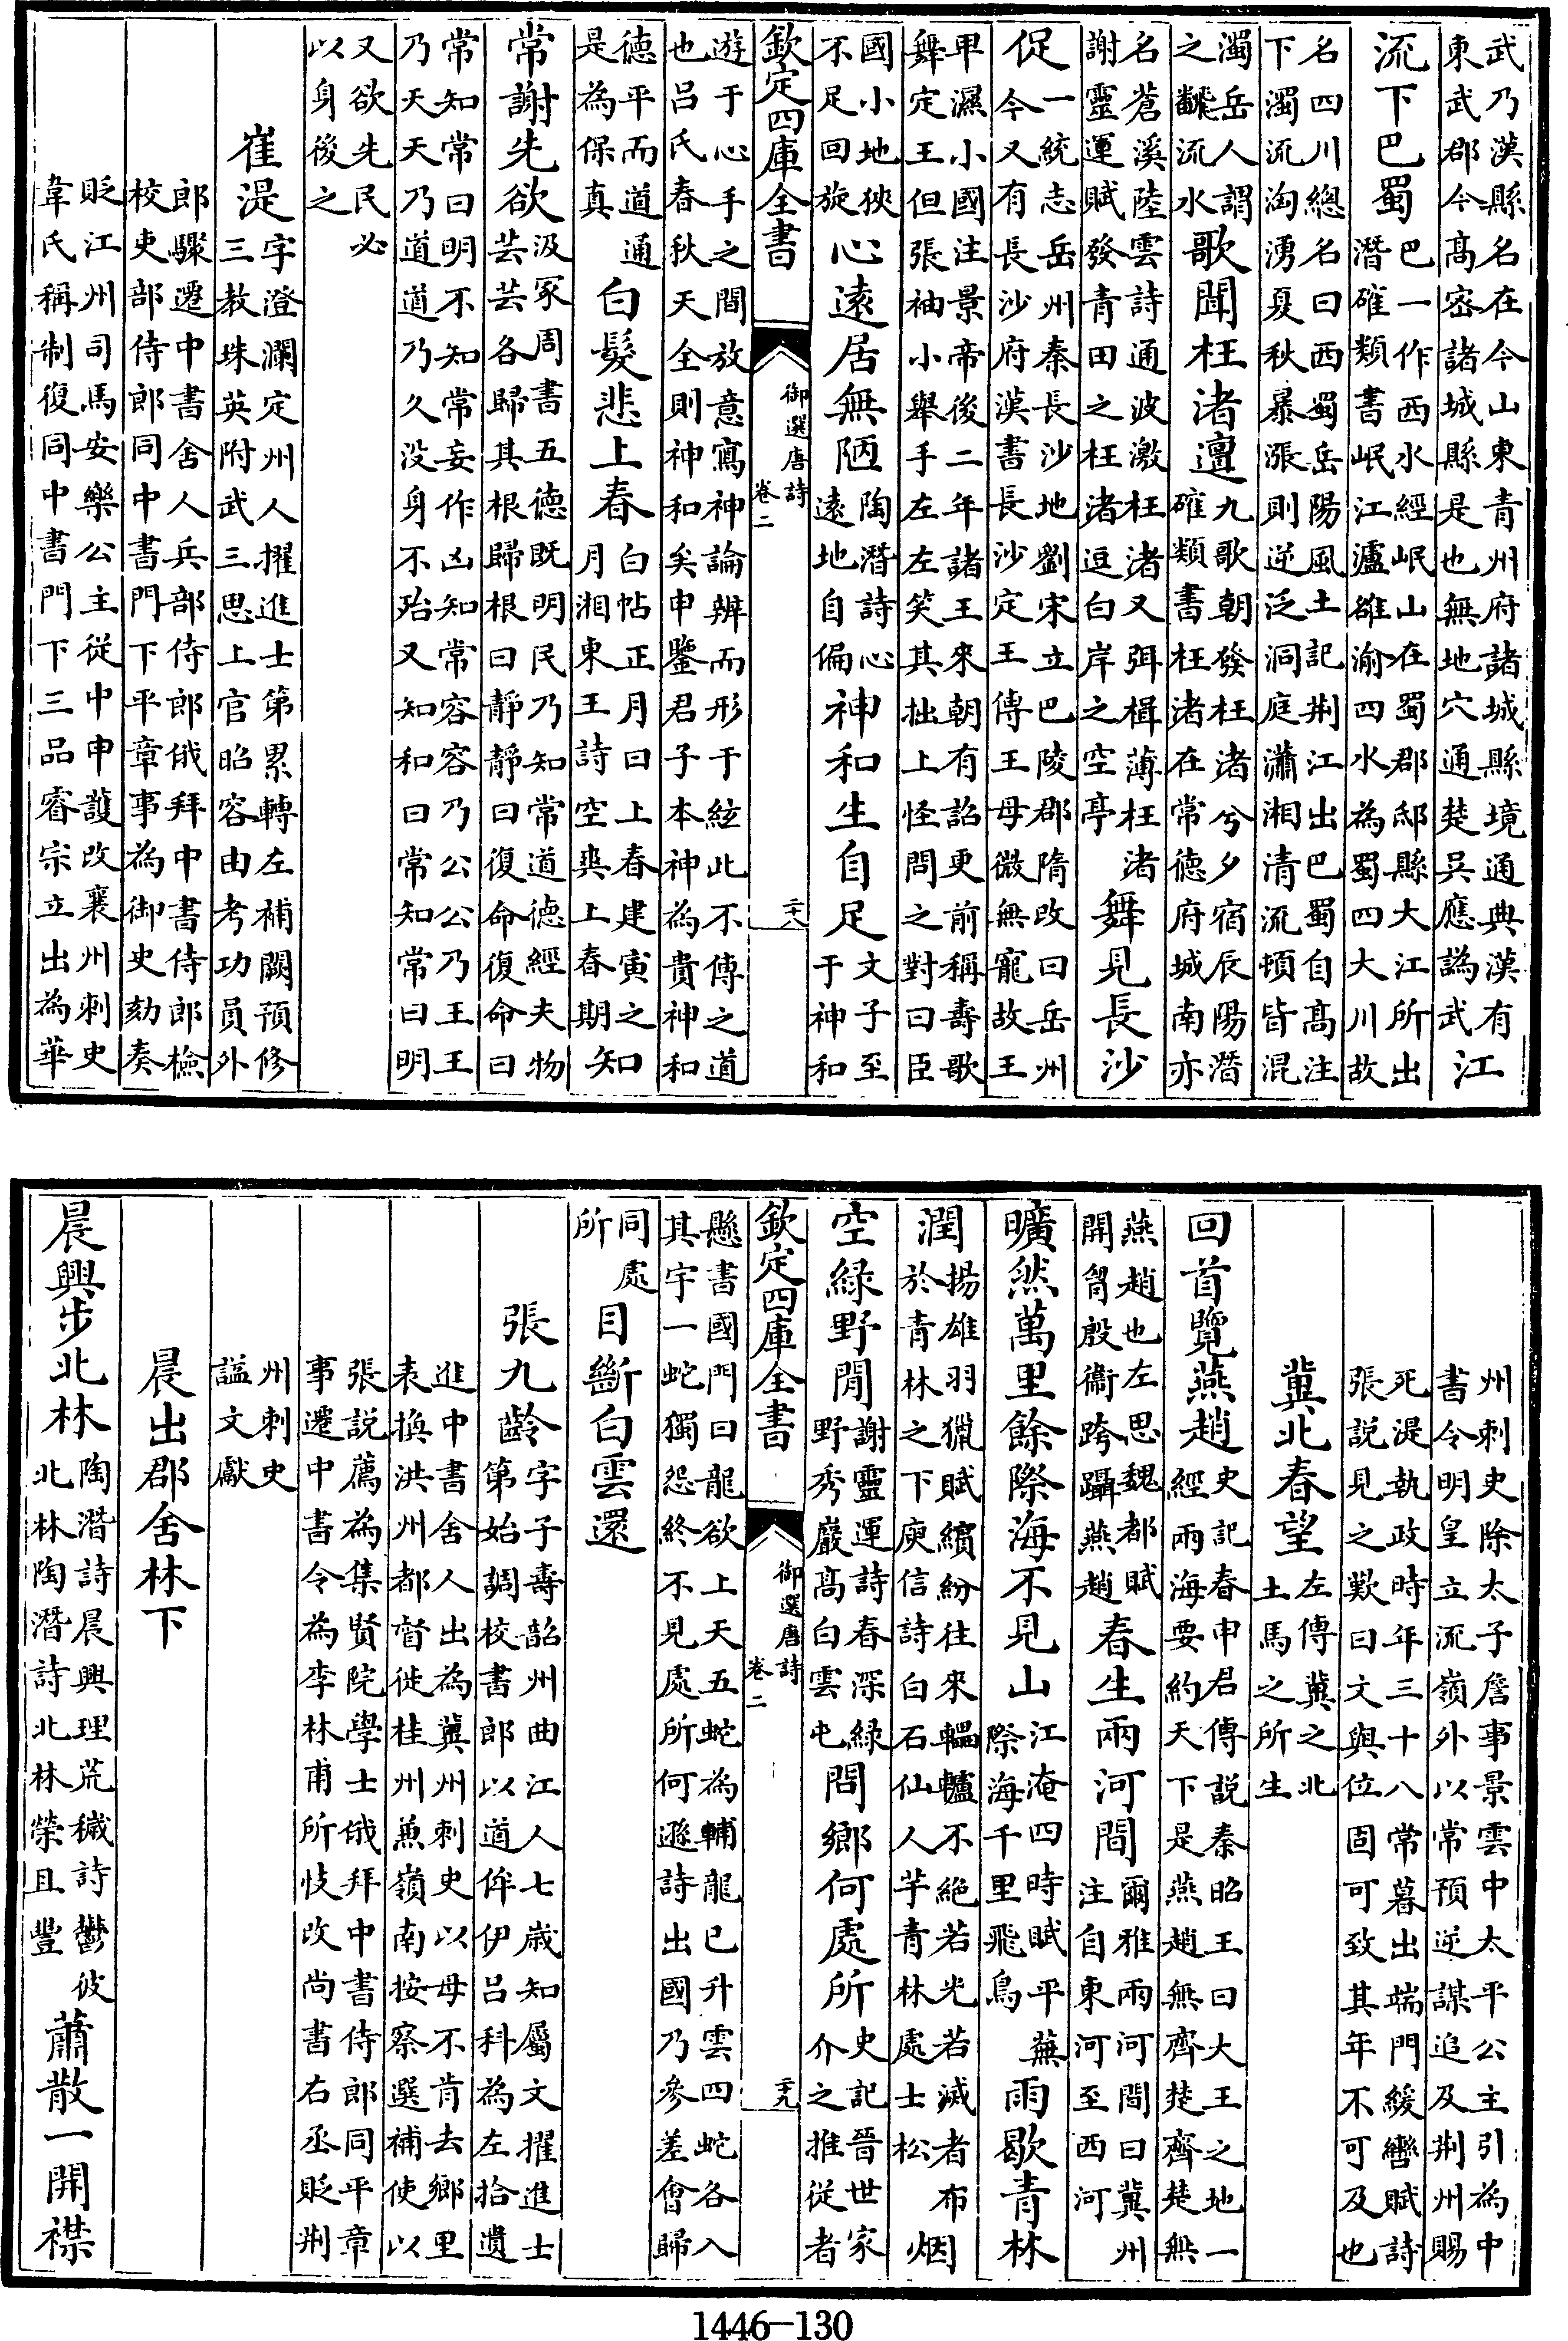 武乃漢縣名在今山東青州府諸城縣境通典漢有
東武郡今髙宻諸城縣是也無地穴通楚呉應譌武
江
流下巴蜀
巴一作西水經岷山在蜀郡邸縣大江所出
潛確類書岷江瀘雒渝四水為蜀四大川故
名四川總名曰西蜀岳陽風土記荆江出巴蜀自髙注
下濁流洶湧夏秋暴漲則逆泛洞庭瀟湘清流頓皆混
濁岳人謂
之飜流水
歌聞枉渚邅
九歌朝發枉渚兮夕宿辰陽潛
確類書枉渚在常德府城南亦
名蒼溪陸雲詩通波激枉渚又弭楫薄枉渚
謝靈運賦發青田之枉渚逗白岸之空亭
舞見長沙
促
一統志岳州秦長沙地劉宋立巴陵郡隋改曰岳州
今又有長沙府漢書長沙定王傳王母微無寵故王
甲濕小國注景帝後二年諸王來朝有詔更前稱壽歌
舞定王但張袖小舉手左左笑其拙上怪問之對曰臣
國小地狹
不足回旋
心遠居無陋
陶潛詩心
遠地自偏
神和生自足
文子至
于神和
欽定四庫全書
御選唐詩
卷二
二十八
遊于心手之間放意寫神論辨而形于絃此不傳之道
也呂氏春秋天全則神和矣申鑒君子本神為貴神和
德平而道通
是為保真
白髮悲上春
白帖正月曰上春建寅之
月湘東王詩空爽上春期
知
常謝先欲
汲冢周書五德既明民乃知常道德經夫物
芸芸各歸其根歸根曰靜靜曰復命復命曰
常知常曰明不知常妄作凶知常容容乃公公乃王王
乃天天乃道道乃久没身不殆又知和曰常知常曰明
又欲先民必
以身後之
崔湜
字澄瀾定州人擢進士第累轉左補闕預修
三教珠英附武三思上官昭容由考功員外
郎驟遷中書舍人兵部侍郎俄拜中書侍郎檢
校吏部侍郎同中書門下平章事為御史劾奏
貶江州司馬安樂公主從中申護改襄州刺史
韋氏稱制復同中書門下三品睿宗立出為華
州刺史除太子詹事景雲中太平公主引為中
書令明皇立流嶺外以常預逆謀追及荆州賜
死湜執政時年三十八常暮出端門緩轡賦詩
張説見之歎曰文與位固可致其年不可及也
冀北春望
左傳冀之北
土馬之所生
回首覽燕趙
史記春申君傳説秦昭王曰大王之地一
經兩海要約天下是燕趙無齊楚齊楚無
燕趙也左思魏都賦
開胷殷衞跨躡燕趙
春生兩河間
爾雅兩河間曰冀州
注自東河至西河
曠然萬里餘際海不見山
江淹四時賦平蕪
際海千里飛鳥
雨歇青林
潤
揚雄羽獵賦繽紛往來轠轤不絶若光若滅者布
於青林之下庾信詩白石仙人芋青林處士松
烟
空緑野閒
謝靈運詩春深緑
野秀巖髙白雲屯
問鄉何處所
史記晉世家
介之推從者
欽定四庫全書
御選唐詩
卷二
二十九
懸書國門曰龍欲上天五蛇為輔龍已升雲四蛇各入
其宇一蛇獨怨終不見處所何遜詩出國乃參差㑹歸
同處
所
目斷白雲還
張九齡
字子壽韶州曲江人七歲知屬文擢進士
第始調校書郎以道侔伊呂科為左拾遺
進中書舍人出為冀州刺史以母不肯去鄉里
表換洪州都督徙桂州兼嶺南按察選補使以
張説薦為集賢院學士俄拜中書侍郎同平章
事遷中書令為李林甫所忮改尚書右丞貶荆
州刺史
諡文獻
晨出郡舍林下
晨興步北林
陶潛詩晨興理荒穢詩鬱彼
北林陶潛詩北林榮且豐
蕭散一開襟
1446-130